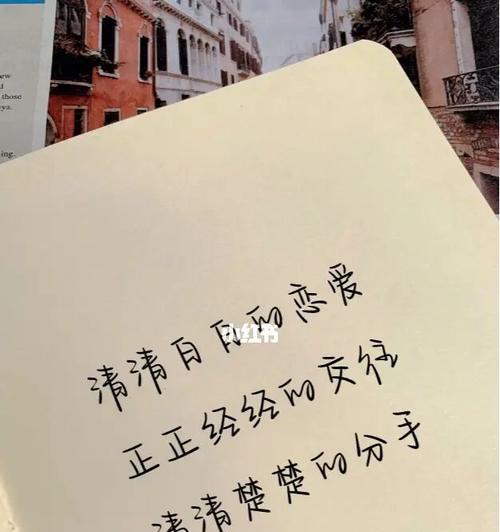 new
d
those
eya.
ing.
清清白白的恋爱
小红书
正正经经的交往
清清楚楚的分手